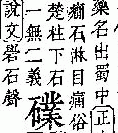 藥名出蜀中正
石淋目痛俗
楚柱下石
一無二義
說文礐石聲